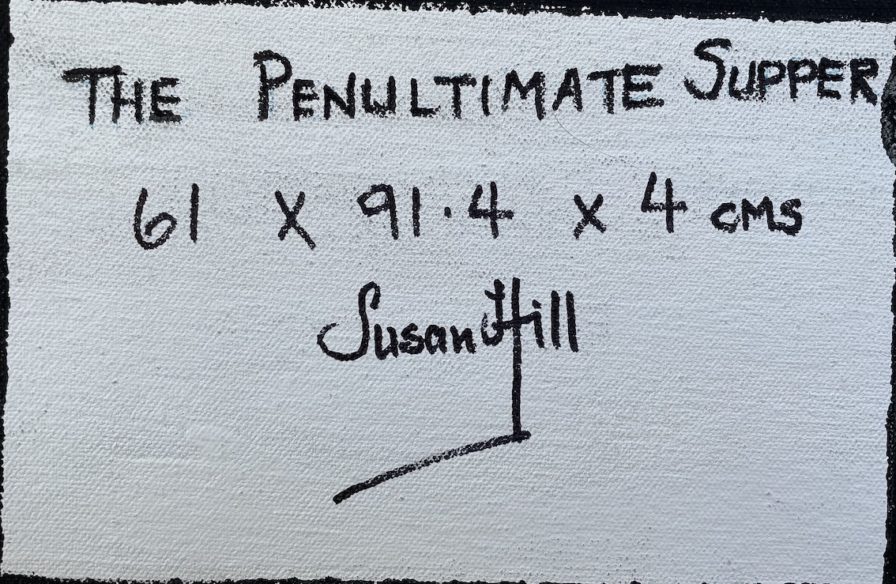 THE PENULTIMATE SUPPER
61 x 91.4 x 4 cms
Susan Hill